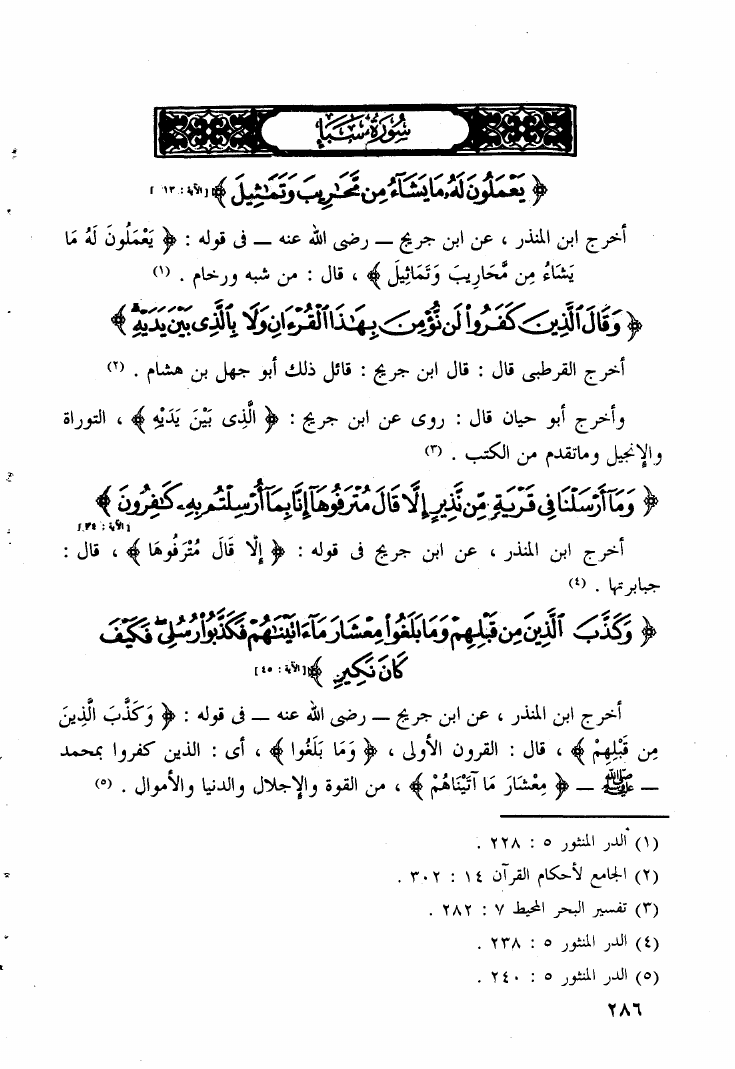 سُورَةُ سَبَإٍ
﴿ يَعْمَلُونَ لَهُۥ مَا يَشَآءُ مِن مَّحَٰرِيبَ وَتَمَٰثِيلَ ﴾ [الآية : ١٣ ]
أخرج ابن المنذر ، عن ابن جريج ــ رضى الله عنه ــ فى قوله : ﴿ يَعْمَلُونَ لَهُ مَا
يَشَاءُ مِن مَّحَارِيبَ وَتَمَاثِيلَ ﴾ ، قال : من شبه ورخام . (١)
﴿ وَقَالَ ٱلَّذِينَ كَفَرُوا۟ لَن نُّؤْمِنَ بِهَٰذَا ٱلْقُرْءَانِ وَلَا بِٱلَّذِى بَيْنَ يَدَيْهِ ﴾
أخرج القرطبى قال : قال ابن جريج : قائل ذلك أبو جهل بن هشام . (٢)
وأخرج أبو حيان قال : روى عن ابن جريج : ﴿ الَّذِى بَيْنَ يَدَيْهِ ﴾ ، التوراة
والإنجيل وماتقدم من الكتب . (٣)
﴿ وَمَآ أَرْسَلْنَا فِى قَرْيَةٍ مِّن نَّذِيرٍ إِلَّا قَالَ مُتْرَفُوهَآ إِنَّا بِمَآ أُرْسِلْتُم بِهِۦ كَٰفِرُونَ ﴾
[الآية : ٣٤]
أخرج ابن المنذر ، عن ابن جريج فى قوله : ﴿ إِلَّا قَالَ مُتْرَفُوهَا ﴾ ، قال :
جبابرتها . (٤)
﴿ وَكَذَّبَ ٱلَّذِينَ مِن قَبْلِهِمْ وَمَا بَلَغُوا۟ مِعْشَارَ مَآ ءَاتَيْنَٰهُمْ فَكَذَّبُوا۟ رُسُلِى ۖ فَكَيْفَ
كَانَ نَكِيرِ ﴾ [الآية : ٤٥]
أخرج ابن المنذر ، عن ابن جريج ــ رضى الله عنه ــ فى قوله : ﴿ وَكَذَّبَ الَّذِينَ
مِن قَبْلِهِمْ ﴾ ، قال : القرون الأولى ، ﴿ وَمَا بَلَغُوا ﴾ ، أى : الذين كفروا بمحمد
ــ ﷺ ــ ﴿ مِعْشَارَ مَا آتَيْنَاهُمْ ﴾ ، من القوة والإجلال والدنيا والأموال . (٥)
(١) الدر المنثور ٥ : ٢٢٨ .
(٢) الجامع لأحكام القرآن ١٤ : ٣٠٢ .
(٣) تفسير البحر المحيط ٧ : ٢٨٢ .
(٤) الدر المنثور ٥ : ٢٣٨ .
(٥) الدر المنثور ٥ : ٢٤٠ .
٢٨٦